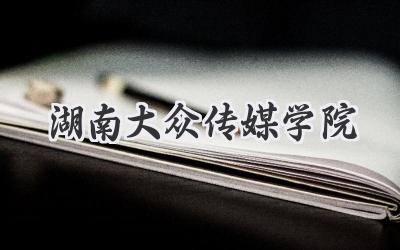 湖南大众传媒学院